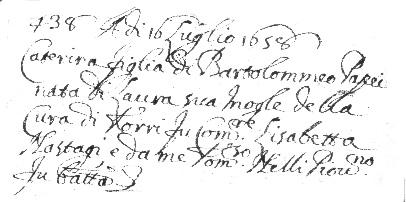 438 A di 16 Luglio 1658
Caterina figlia di Bartolommeo
nata di Laura sua Mogle della
Cura di Torri fu Com.re Lisabetta
e da me Tom.so Nelli Piov.no
fu batta.